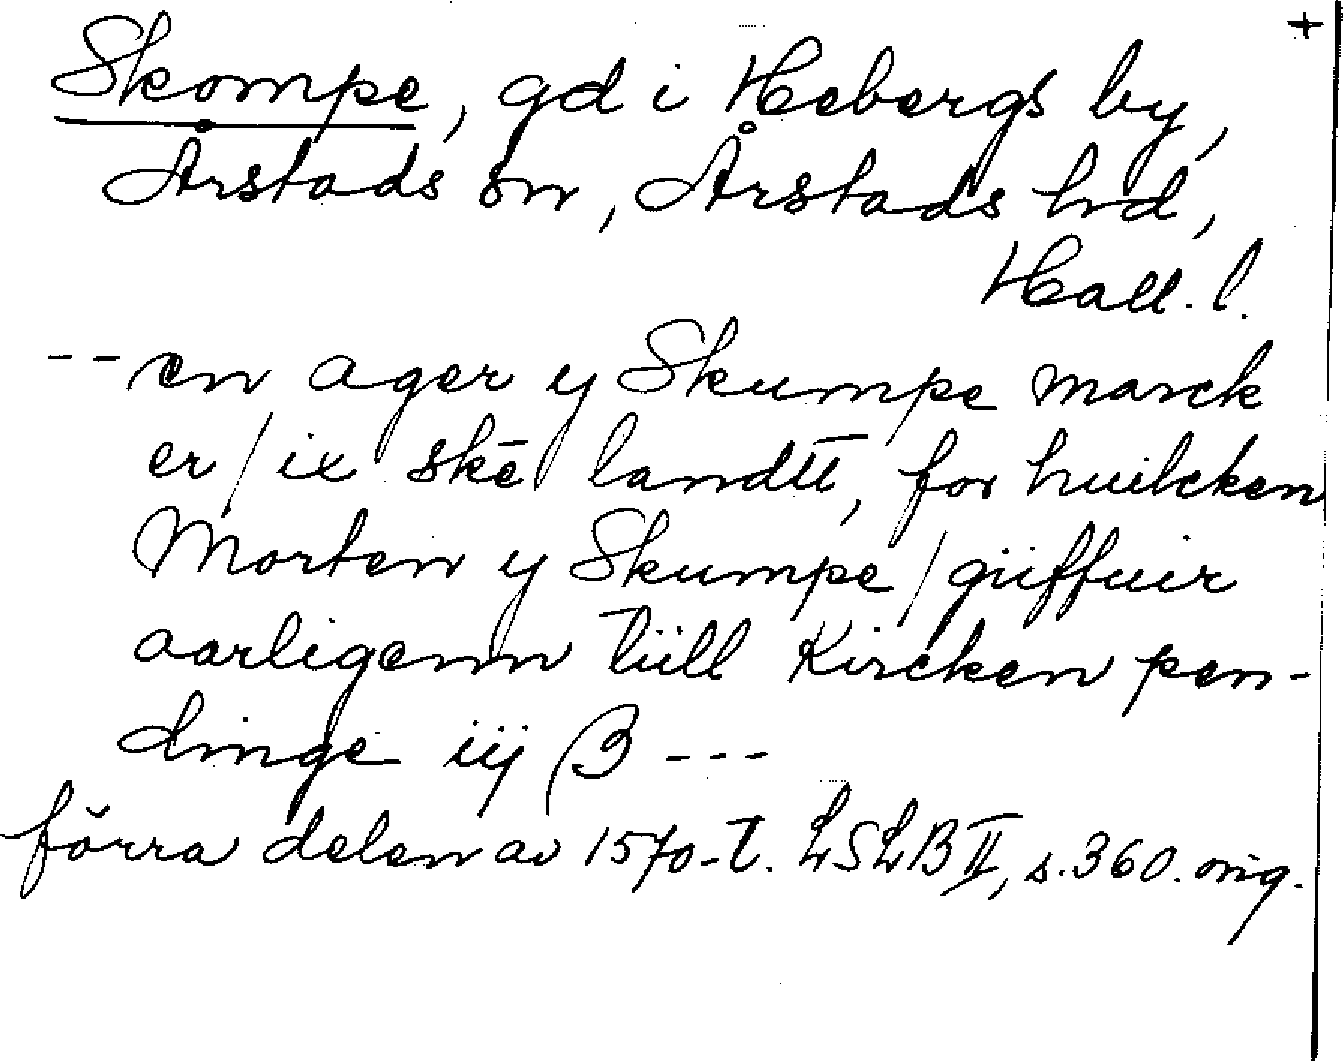 +
Skompe, gd i Hebergs by,
Årstads sn, Årstads hd,
Hall. l.
-- en ager y Skumpe marck
er / ix skē landtt, for huilcken
Morten y Skumpe / giiffuir
aarligenn tiill Kircken pen-
dinge iij β ---
förra delen av 1570-t. LSLB II, s. 360. orig.